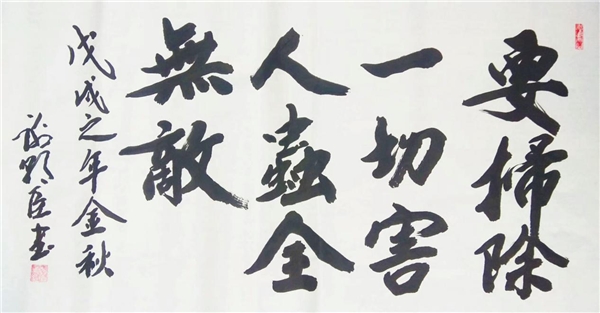 要掃除
一切害
人蟲全
無敵
戊戌之年金秋
謝明臣書